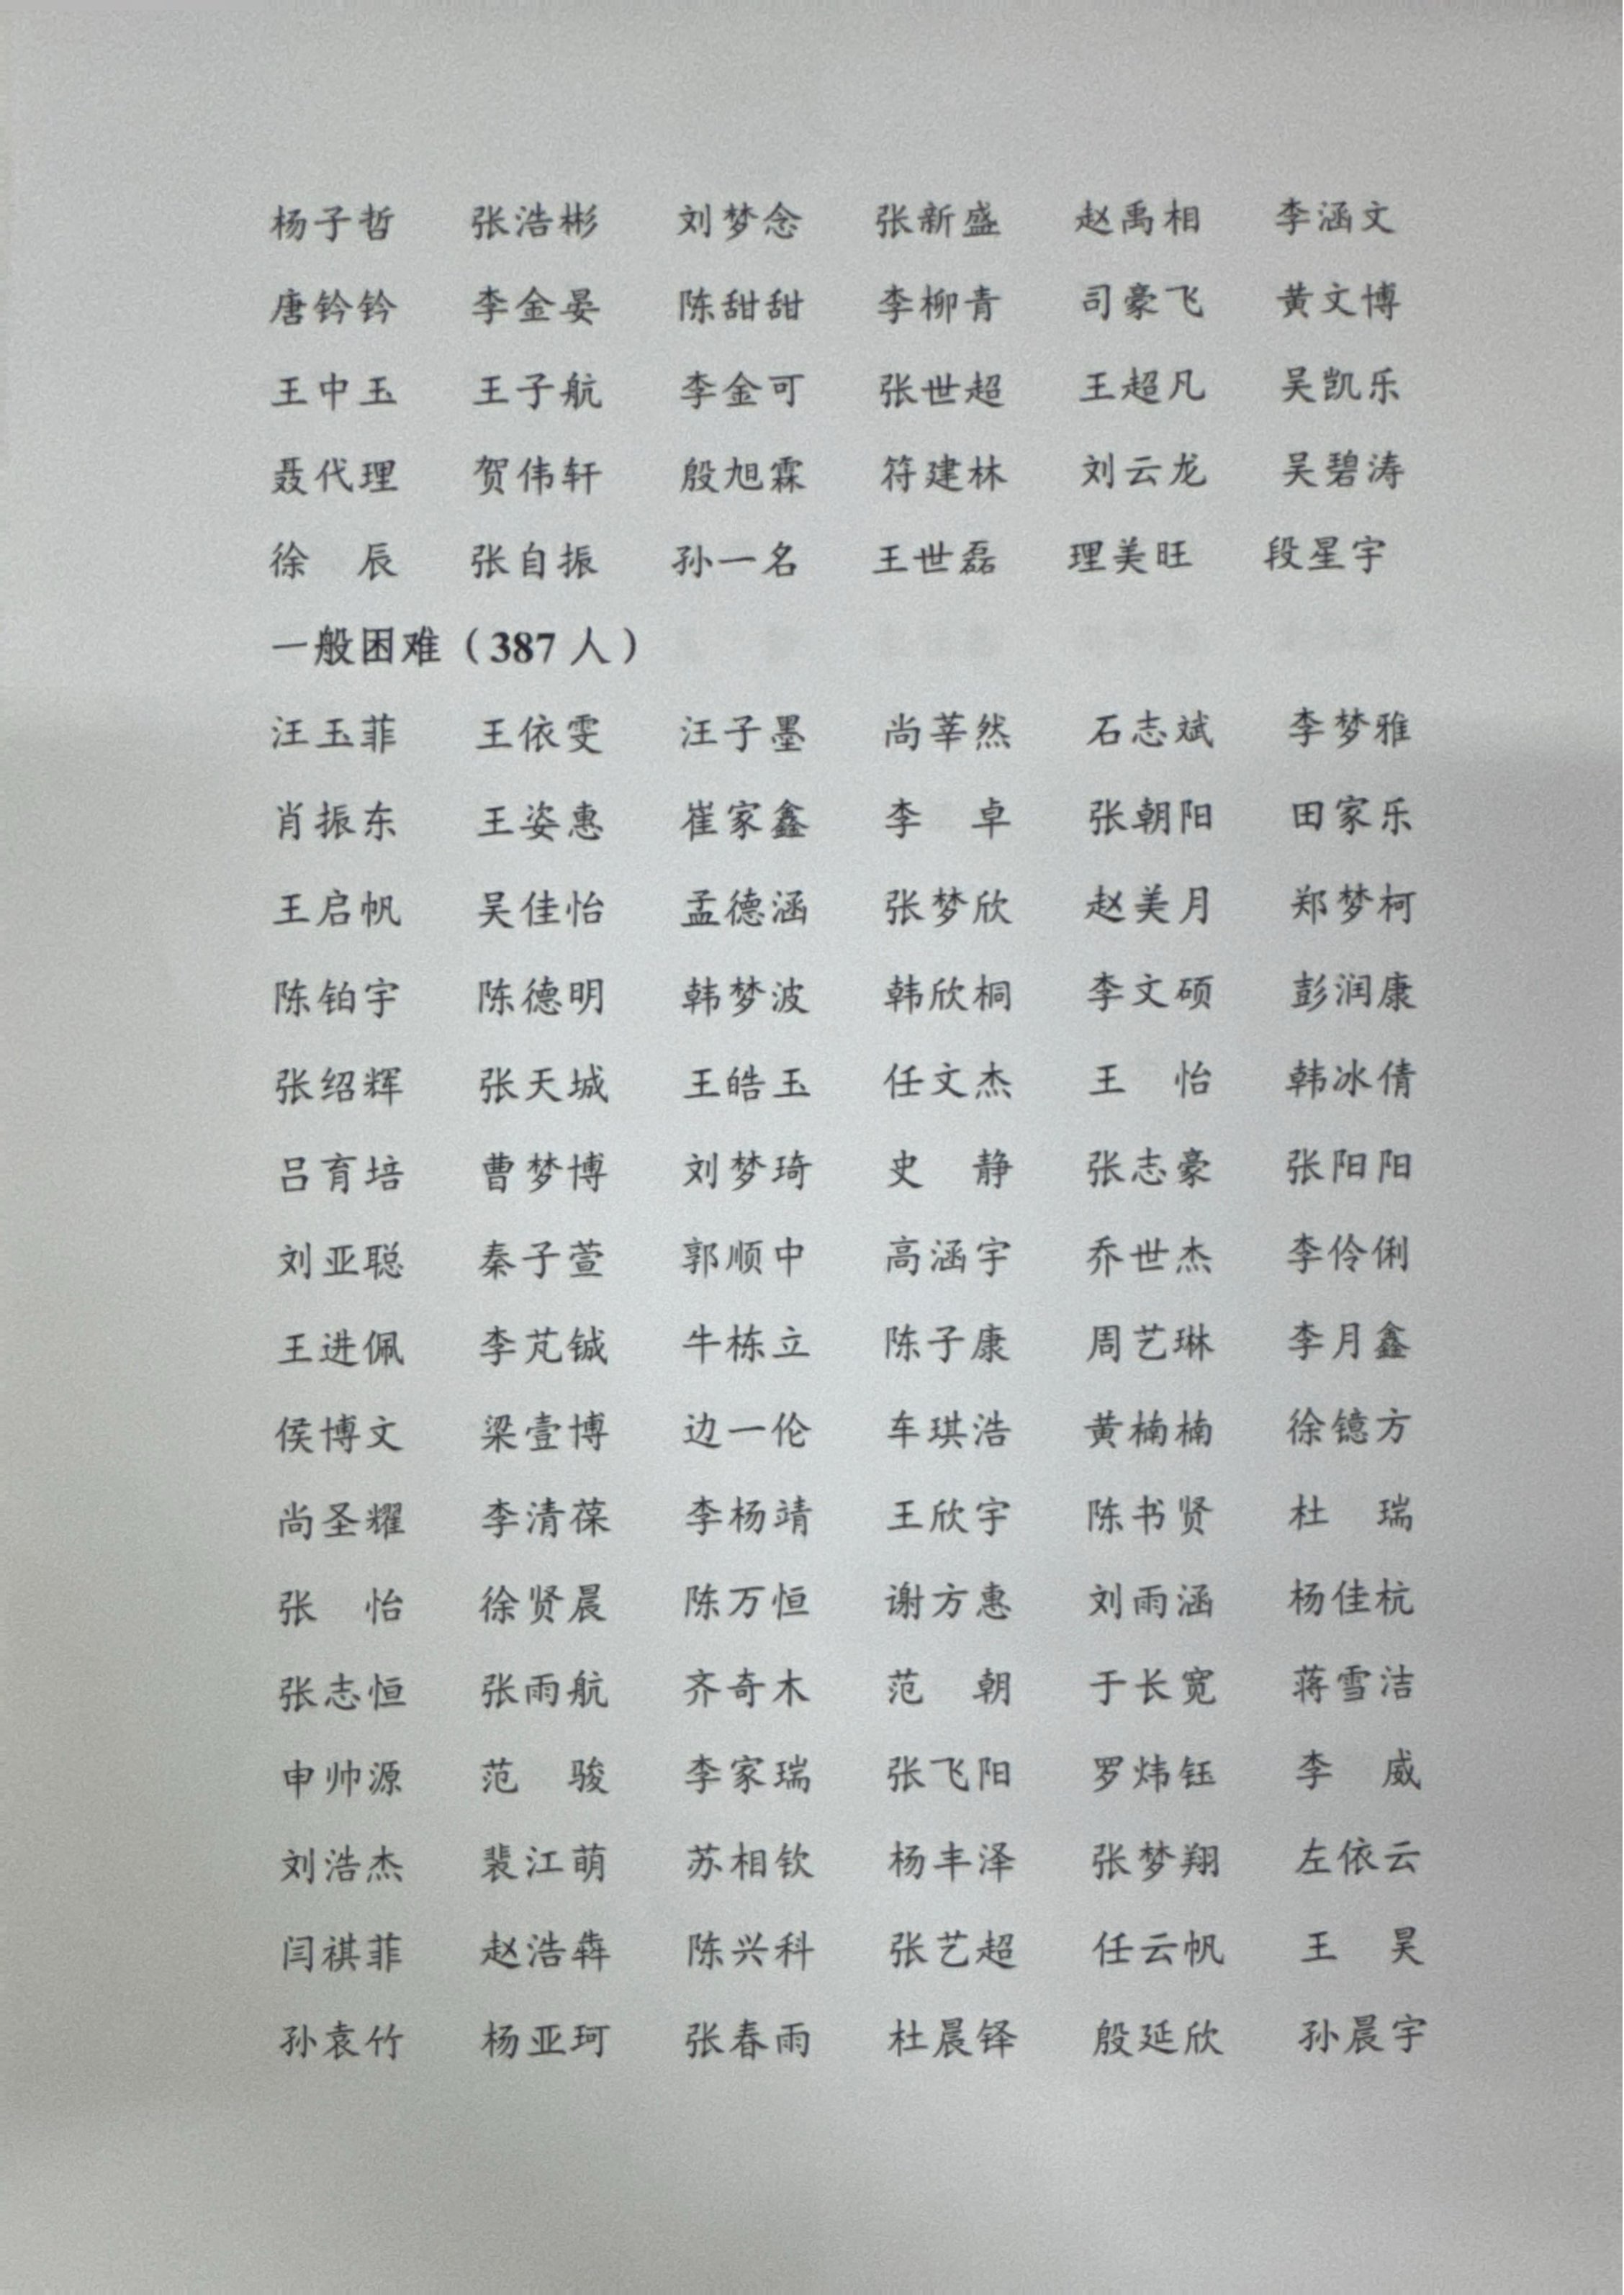 杨子哲 张浩彬 刘梦念 张新盛 赵禹相 李涵文
唐钤钤 李金晏 陈甜甜 李柳青 司豪飞 黄文博
王中玉 王子航 李金可 张世超 王超凡 吴凯乐
聂代理 贺伟轩 殷旭霖 符建林 刘云龙 吴碧涛
徐　辰 张自振 孙一名 王世磊 理美旺 段星宇
一般困难（387 人）
汪玉菲 王依雯 汪子墨 尚莘然 石志斌 李梦雅
肖振东 王姿惠 崔家鑫 李　卓 张朝阳 田家乐
王启帆 吴佳怡 孟德涵 张梦欣 赵美月 郑梦柯
陈铂宇 陈德明 韩梦波 韩欣桐 李文硕 彭润康
张绍辉 张天城 王皓玉 任文杰 王　怡 韩冰倩
吕育培 曹梦博 刘梦琦 史　静 张志豪 张阳阳
刘亚聪 秦子萱 郭顺中 高涵宇 乔世杰 李伶俐
王进佩 李芃铖 牛栋立 陈子康 周艺琳 李月鑫
侯博文 梁壹博 边一伦 车琪浩 黄楠楠 徐镱方
尚圣耀 李清葆 李杨靖 王欣宇 陈书贤 杜　瑞
张　怡 徐贤晨 陈万恒 谢方惠 刘雨涵 杨佳杭
张志恒 张雨航 齐奇木 范　朝 于长宽 蒋雪洁
申帅源 范　骏 李家瑞 张飞阳 罗炜钰 李　威
刘浩杰 裴江萌 苏相钦 杨丰泽 张梦翔 左依云
闫祺菲 赵浩犇 陈兴科 张艺超 任云帆 王　昊
孙袁竹 杨亚珂 张春雨 杜晨铎 殷延欣 孙晨宇